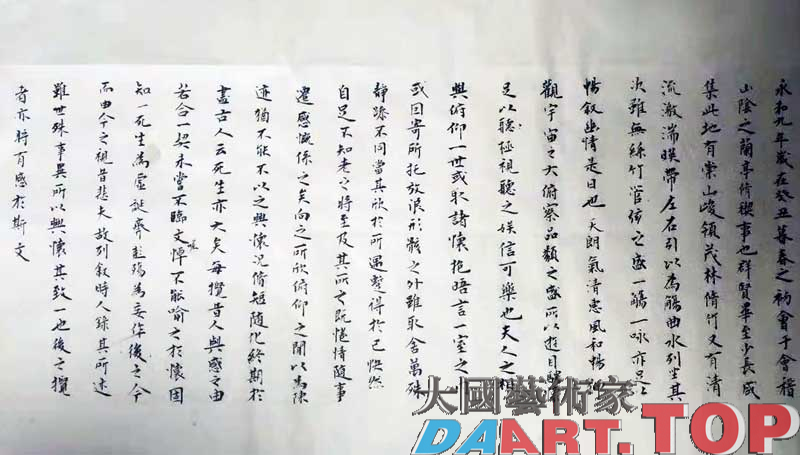 永和九年歲在癸丑暮春之初會于會稽
山陰之蘭亭脩稧事也群賢畢至少長咸
集此地有崇山峻領茂林脩竹又有清
流激湍暎帶左右引以為觴曲水列坐其
次雖無絲竹管弦之盛一觴一詠亦足
暢敘幽情是日也天朗氣清惠風和暢
觀宇宙之大俯察品類之盛所以遊目騁
足以聽極視聽之娛信可樂也夫人之相
與俯仰一世或取諸懷抱晤言一室之
或因寄所托放浪形骸之外雖取舍萬殊
靜躁不同當其欣於所遇蹔得於己快然
自足不知老之將至及其所之既惓情隨事
遷感慨係之矣向之所欣俯仰之間以為陳
迹猶不能不以之興懷況脩短隨化終期於
盡古人云死生亦大矣每攬昔人興感之由
若合一契未嘗不臨文嗟悼不能喻之於懷固
知一死生為虛誕齊彭殤為妄作後之今
而由今之視昔悲夫故列敘時人錄其所述
雖世殊事異所以興懷其致一也後之攬
者亦將有感於斯文
大國藝術家
DAART.TOP